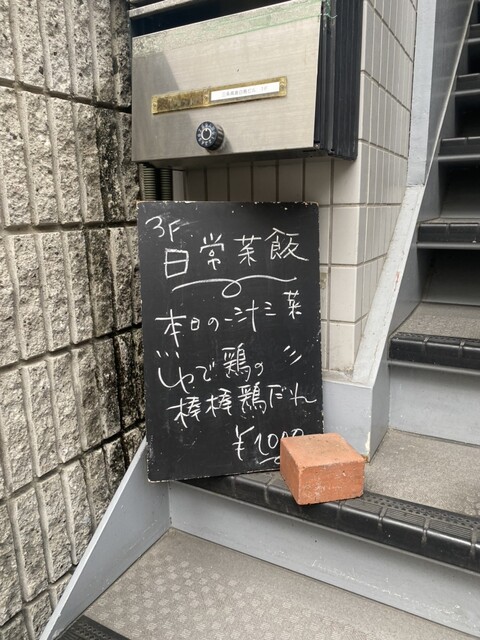 3F
日常茶飯
本日の一汁三菜
ゆで鶏の
棒棒鶏だれ
¥1000